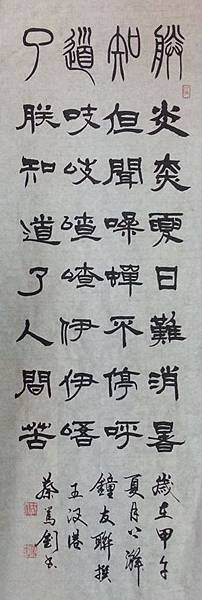 朕知道了
炎炎夏日難消暑
但聞噪蟬不停呼
吱吱喳喳伊伊唔
朕知道了人間苦
歲在甲午
夏月
鐘友聯撰
五汊港
蔡篤釗書